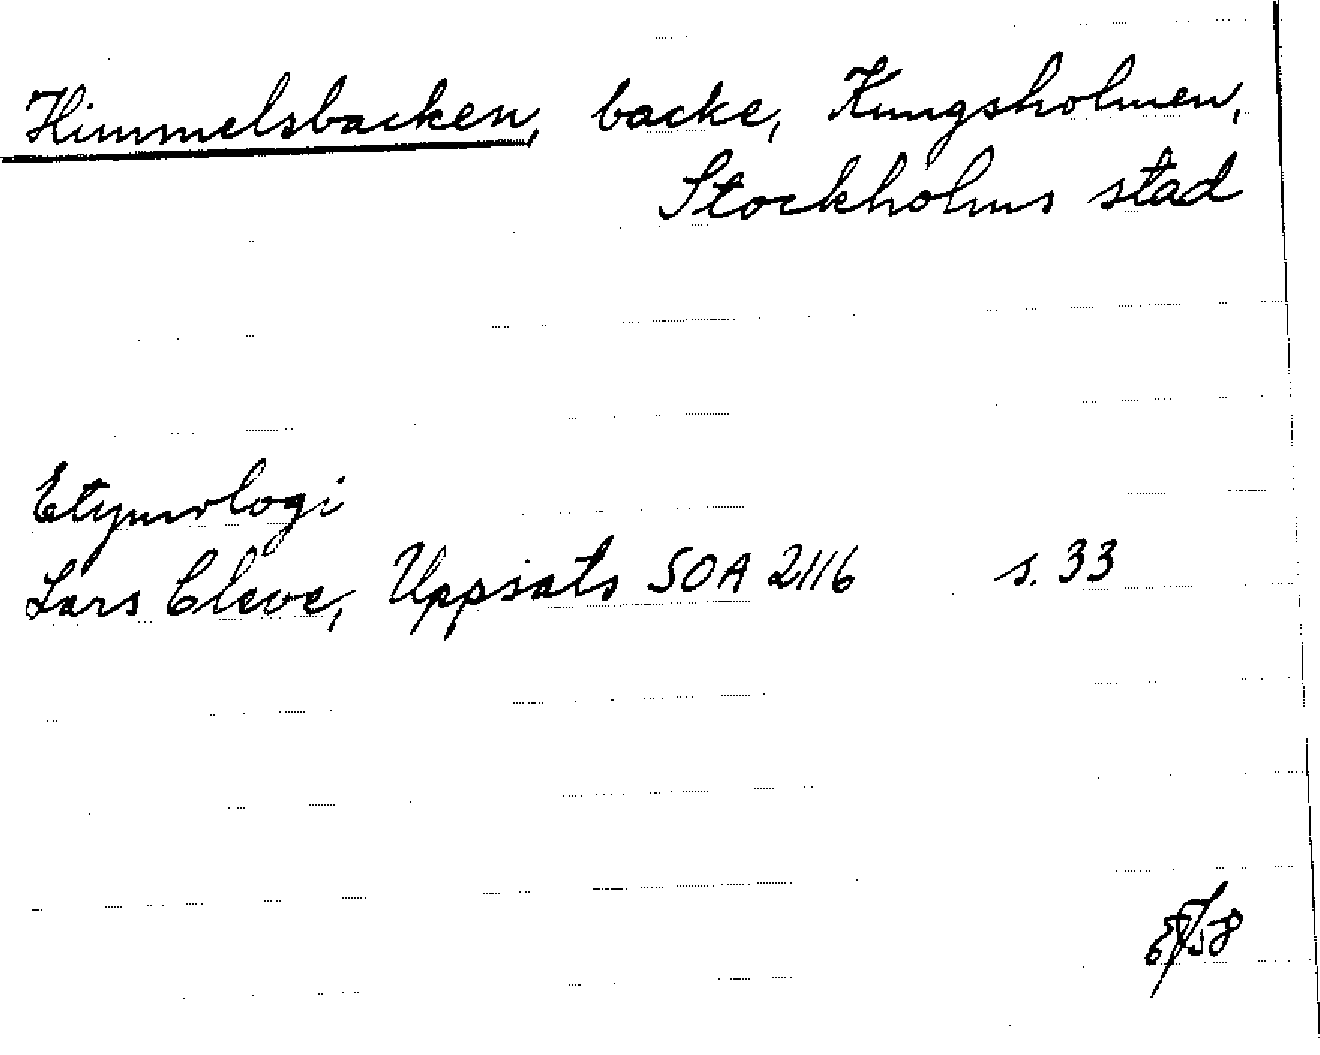 Himmelsbacken, backe, Kungsholmen,
Stockholms stad
Etymologi
Lars Cleve, Uppsats SOA 2116 s. 33